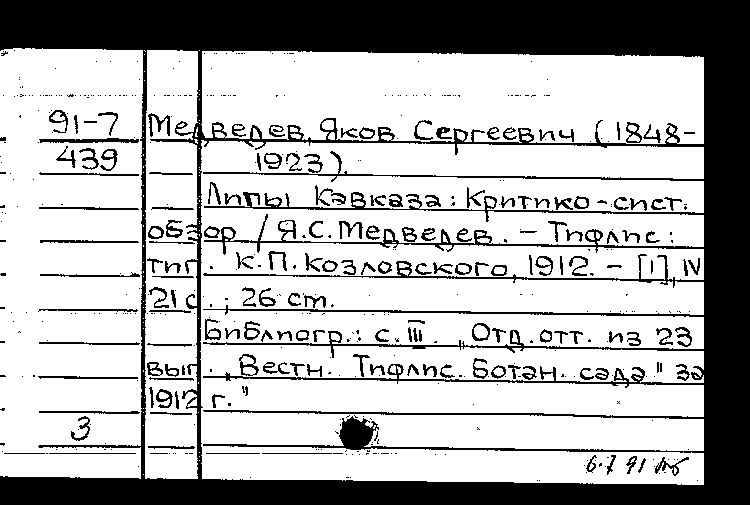 91-7 Медведев, Яков Сергеевич (1848-
439 1923).
Липы Кавказа: Критико-сист.
обзор / Я.С. Медведев. - Тифлис:
тип. К.П. Козловского, 1912. - [1], IV
21 с.; 26 cm.
Библиогр.: с. III. „Отд. отт. из 23
вып. „Вестн. Тифлис. Ботан. сада" за
1912 г."
3
6.7 91